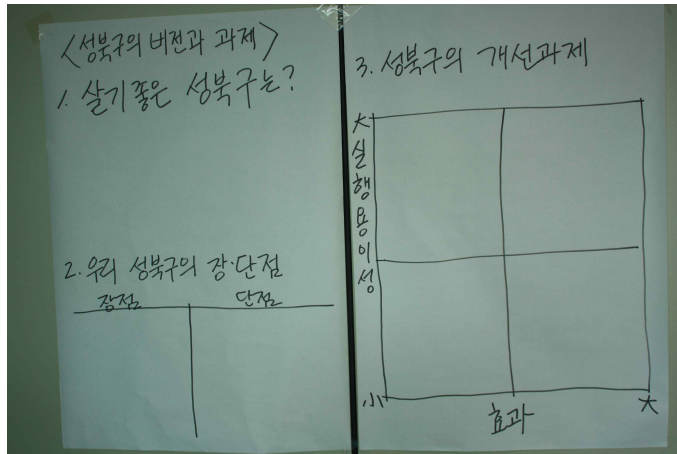 <성북구의 비전과 과제>
1. 살기좋은 성북구는?
2. 우리 성북구의 장·단점
장점 단점
3. 성북구의 개선과제
大
실행용이성
小
효과
大